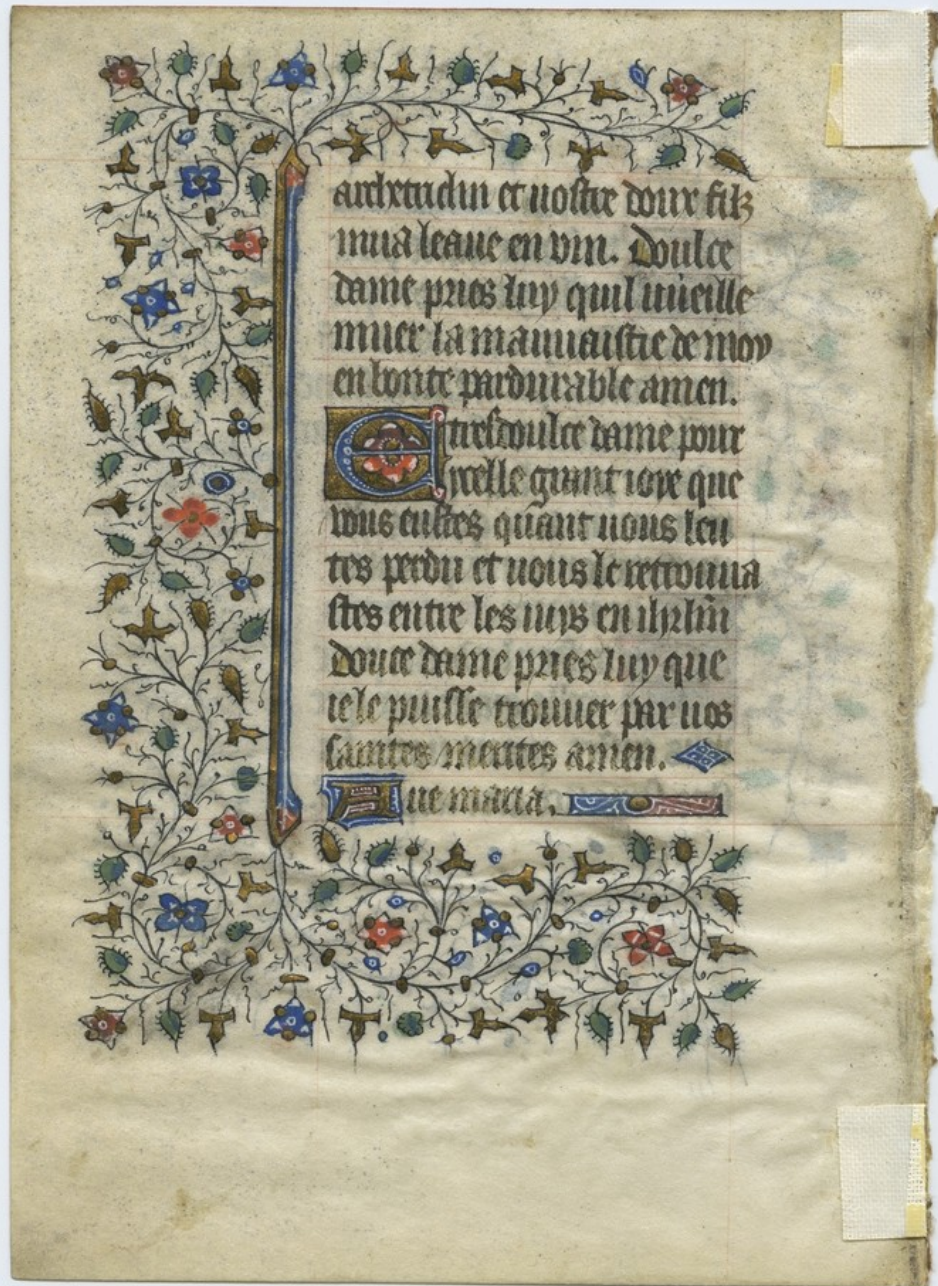 archetriclin et nostre doux filz
mua leaue en vin. Doulce
dame pries luy quil vueille
muer la mauuaistie de moy
en bonte pardurable amen.
E tresdoulce dame pour
ycelle grant ioye que
vous eustes quant uous leu
tes perdu et uous le retrouua
stes entre les iuys en ihrlm̄
Douce dame pries luy que
ie le puisse trouuer par uos
saintes merites amen.
Aue maria.